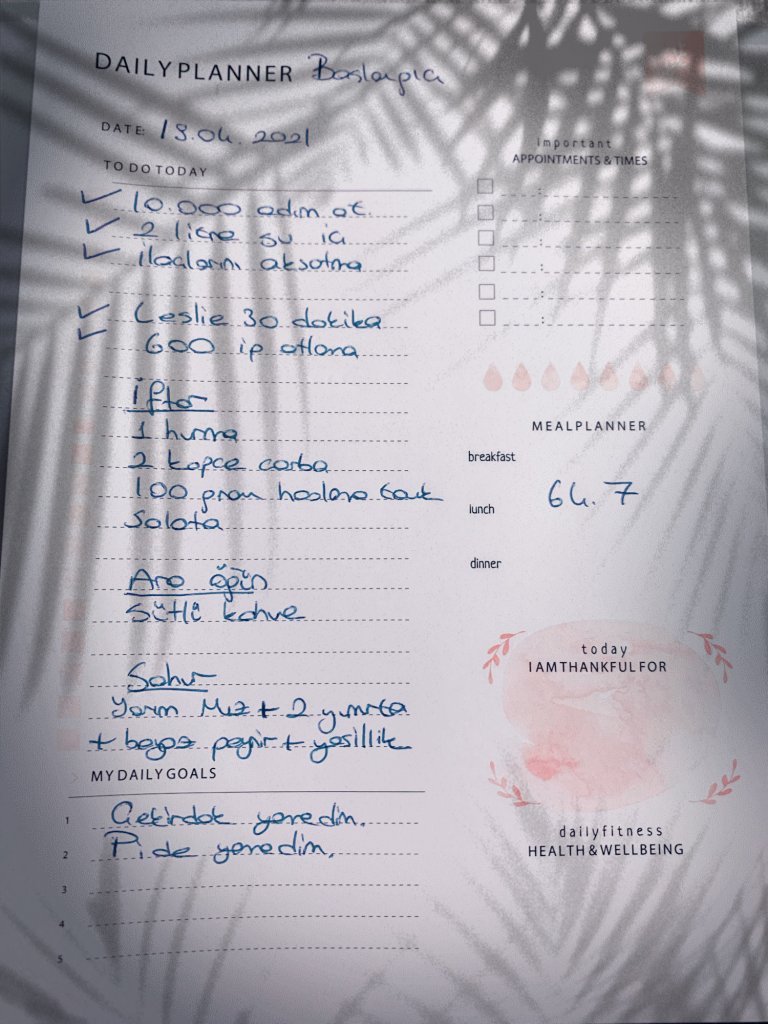 DAILY PLANNER Başlangıç
DATE: 13.04.2021
TO DO TODAY
10.000 adım at.
2 litre su iç
ilaçlarını aksatma
Leslie 30 dakika
600 ip atlama
İftar
1 hurma
2 kepçe çorba
100 gram haşlama tavuk
Salata
Ara öğün
Sütlü kahve
Sahur
Yarım Muz + 2 yumurta
+ beyaz peynir + yeşillik
MY DAILY GOALS
1 Çekirdek yemedim.
2 Pide yemedim.
3
4
5
Important
APPOINTMENTS & TIMES
MEALPLANNER
breakfast
lunch
64.7
dinner
today
I AM THANKFUL FOR
daily fitness
HEALTH & WELLBEING